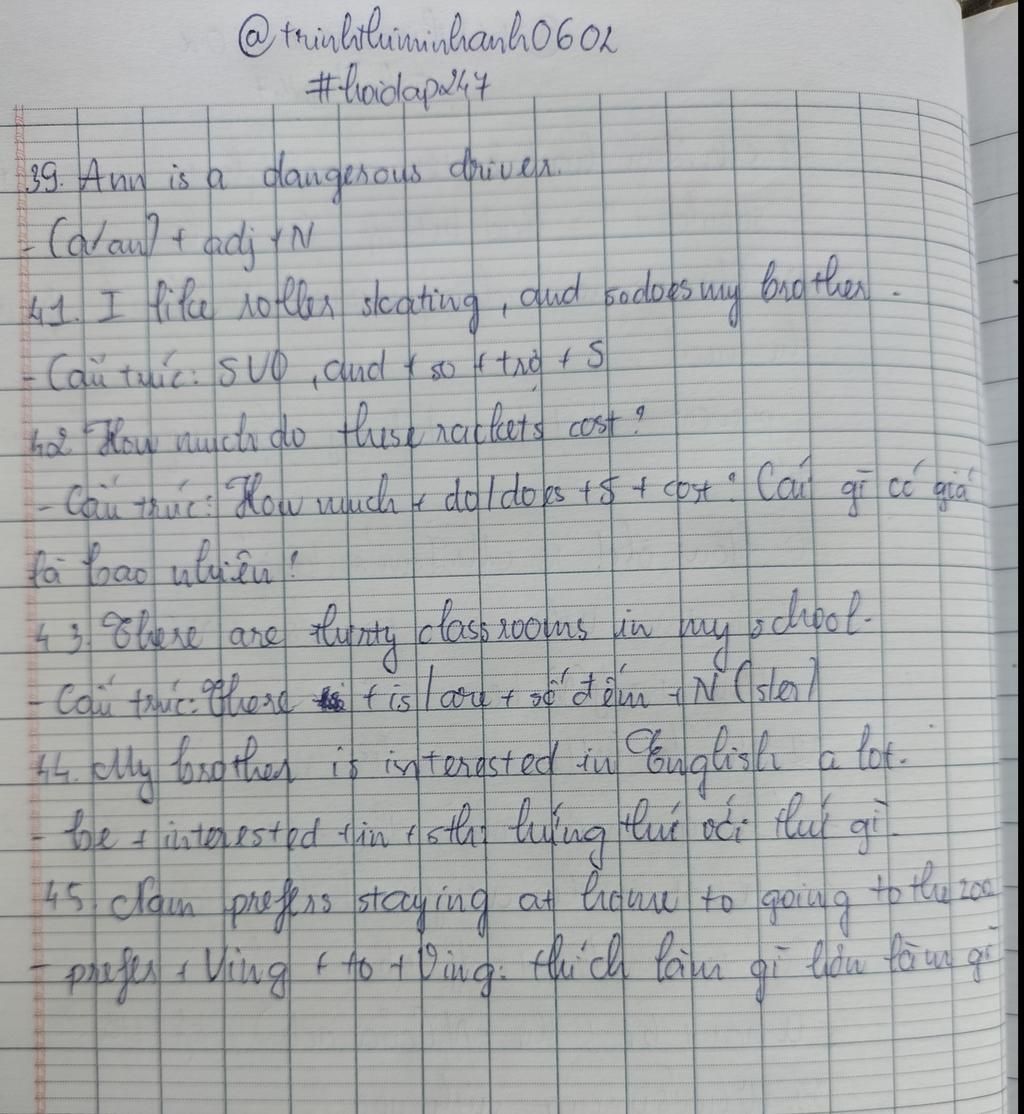 @trinhthiminhanh0602
#hoidap247
39. Ann is a dangerous driver.
- (a/an) + adj + N
41. I like roller skating, and so does my brother.
- Cấu trúc: SVO, and + so + trợ + S
42 How much do these rackets cost?
- Cấu trúc: How much + do/does + S + cost: Cái gì có giá
là bao nhiêu?
43. There are classrooms in my school.
- Cấu trúc: There + is/are + số đếm + N (s/es)
44. My brother is interested in English a lot.
- be + interested + in + sth: hứng thú với thứ gì.
45. Nam prefers staying at home to going to the zoo
- prefer + Ving + to + Ving: thích làm gì hơn làm gì